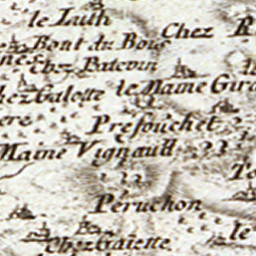 le Luth
Chez R
Bout du Bois
Chez Batevin
hez Galotte le Maine Gira
Presouchet
Maine Vignault
Peruchon
le
Chez Gaiette